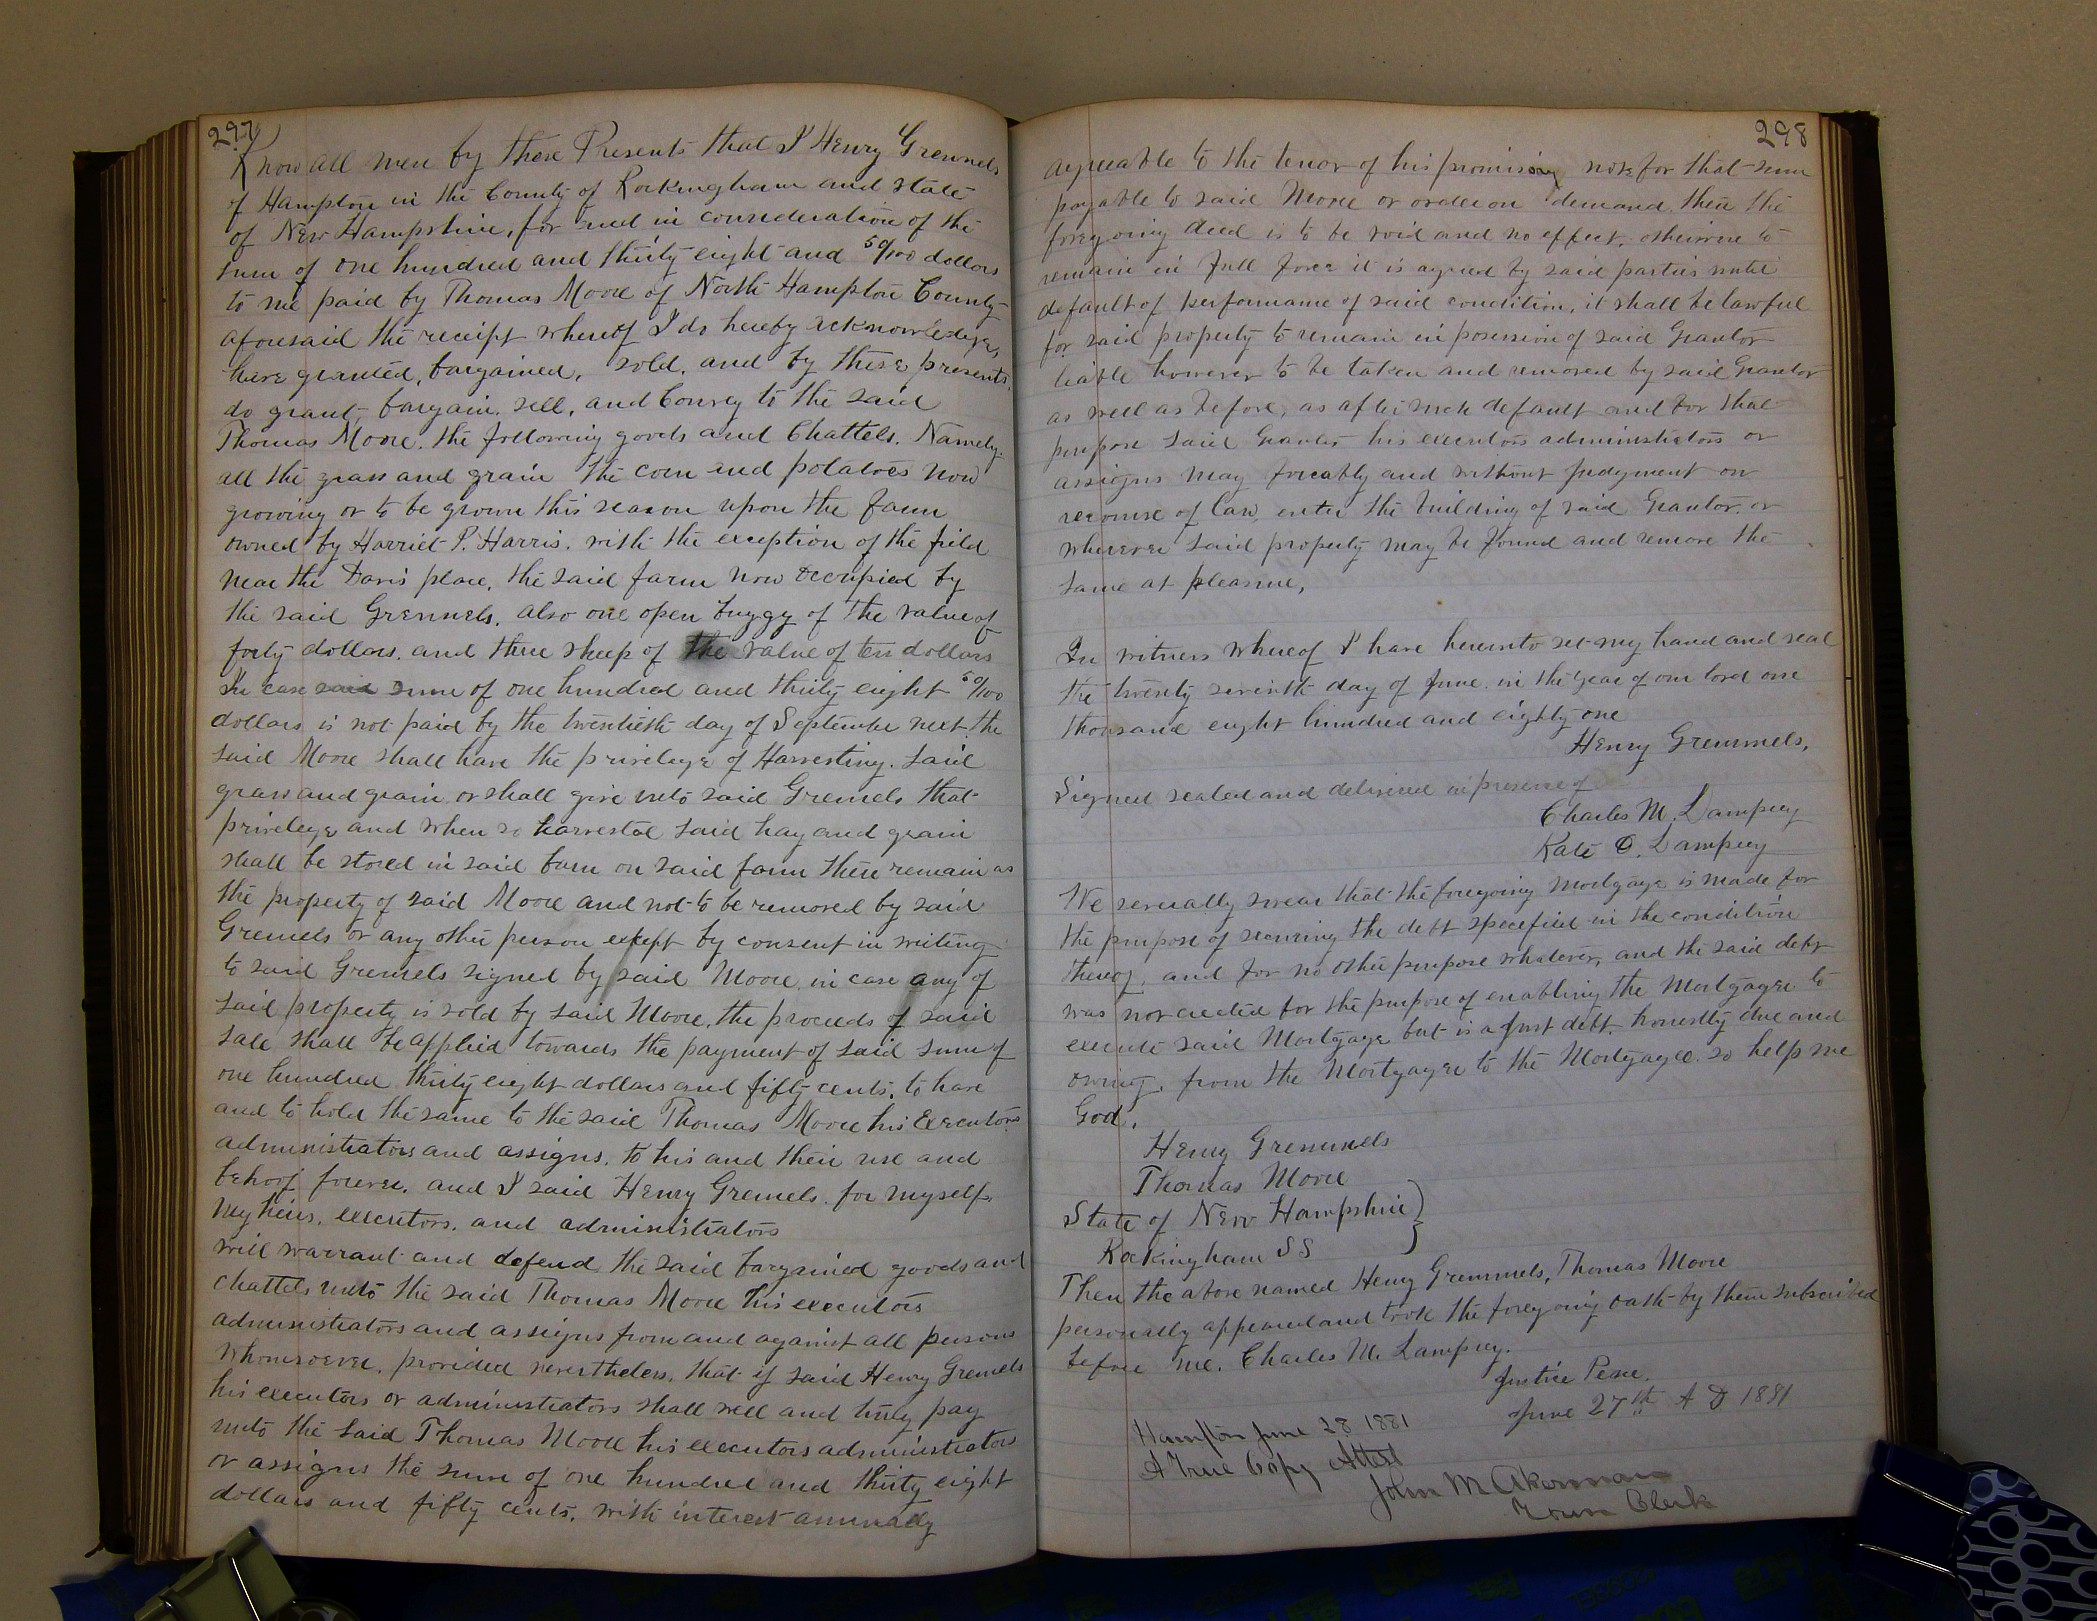 297
Know all men by these Presents that I Henry Grennels
of Hampton in the County of Rockingham and state
of New Hampshire, for and in consideration of the
sum of one hundred and thirty eight and 50/100 dollars
to me paid by Thomas Moore of North Hampton County
aforesaid the receipt whereof I do hereby acknowledge,
have granted, bargained, sold, and by these presents,
do grant, bargain, sell, and Convey to the said
Thomas Moore. the following goods and Chattels. Namely.
all the grass and grain the corn and potatoes now
growing or to be grown this season upon the farm
owned by Harriet P. Harris. with the exception of the field
near the Davis place, the said farm now occupied by
the said Grennels. also one open buggy of the value of
forty dollars. and three sheep of the value of ten dollars
In case said sum of one hundred and thirty eight 50/100
dollars is not paid by the twentieth day of September next. the
said Moore shall have the privilege of Harvesting. said
grass and grain or shall give unto said Grennels that
privilege and when so harvested said hay and grain
shall be stored in said barn on said farm there remain as
the property of said Moore and not to be removed by said
Grennels or any other person except by consent in writing
to said Grennels signed by said Moore. in case any of
said property is sold by said Moore, the proceeds of said
sale shall be applied towards the payment of said sum of
one hundred thirty eight dollars and fifty cents. to have
and to hold the same to the said Thomas Moore his Executors
administrators and assigns. to his and their use and
behoof forever. and I said Henry Grennels. for myself,
my heirs. executors. and administrators
will warrant and defend the said bargained goods and
chattels unto the said Thomas Moore his executors
administrators and assigns from and against all persons
whomsoever. provided nevertheless. that if said Henry Grennels
his executors or administrators shall well and truly pay
unto the said Thomas Moore his executors administrators
or assigns the sum of one hundred and thirty eight
dollars and fifty cents. with interest annually
298
agreeable to the tenor of his promissory note for that sum
payable to said Moore or order on demand, then the
foregoing deed is to be void and no effect. otherwise to
remain in full force it is agreed by said parties until
default of performance of said condition, it shall be lawful
for said property to remain in possession of said Grantor
liable however to be taken and removed by said Grantor
as well as before, as after such default and for that
purpose said Grantor his executors administrators or
assigns may forcably and without judgment or
recourse of law enter the building of said Grantor. or
wherever said property may be found and remove the
same at pleasure,
In witness whereof I have hereunto set my hand and seal
the twenty seventh day of June. in the year of our lord one
thousand eight hundred and eighty one
Henry Gremmels.
Signed sealed and delivered in presence of
Charles M. Lamprey
Kate O. Lamprey
We severally swear that the foregoing mortgage is made for
the purpose of securing the debt specefied in the condition
thereof. and for no other purpose whatever, and the said debt
was not created for the purpose of enabling the Mortgager to
execute said Mortgage but is a just debt. honestly due and
owing. from the Mortgager to the Mortgagee. so help me
God.
Henry Gremmels
Thomas Moore
State of New Hampshire }
Rockingham SS
Then the above named Henry Gremmels, Thomas Moore
personally appeared and took the foregoing oath by them subscribed
before me. Charles M. Lamprey.
Justice Peace.
June 27th A D 1881
Hampton June 28 1881
A True Copy Attest
John M Akerman
Town Clerk